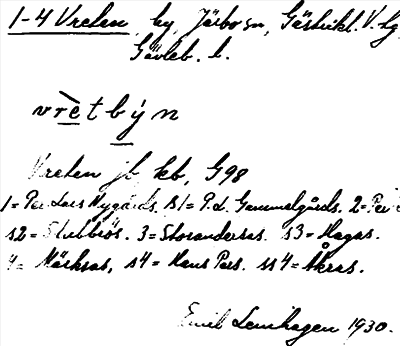 1-4 Vreten, by, Järbo sn, Gästrikl. V. tg
Gävleb. l.
vrètbýn
Vreten jb, kb, G98
1 = Per Lars Nygårds. s1 = P.L. Gammelgårds. 2 = Per
s2 = Stubbrös. 3 = Storandersas. s3 = Hagas.
4 = Mäcksas, s4 = Hans Pers. ss4 = Åkras.
Emil Lenhagen 1930.